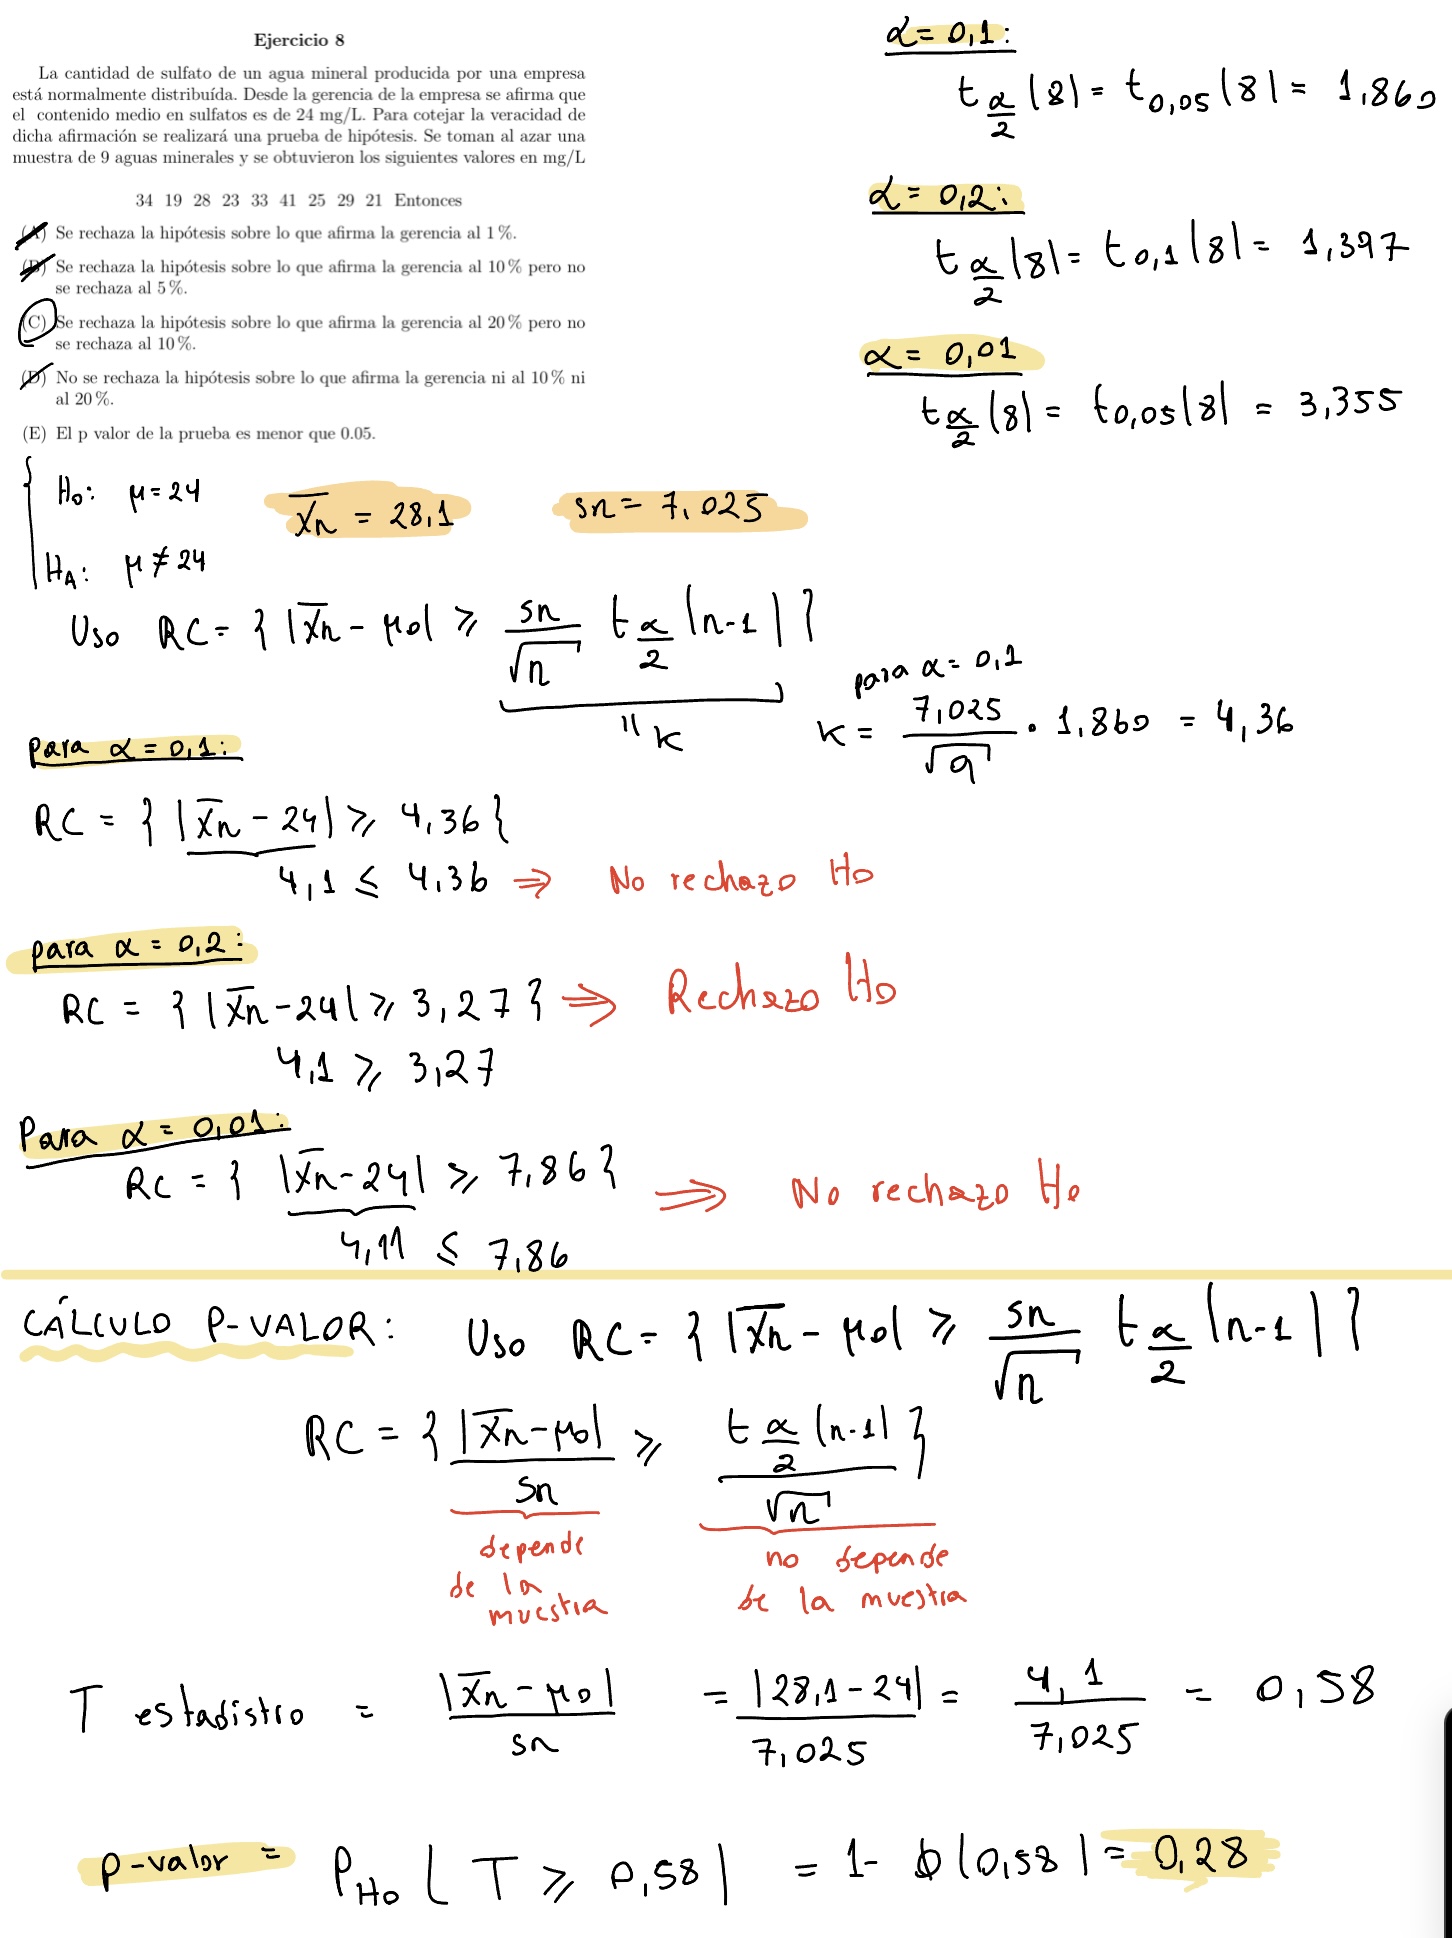 Ejercicio 8
La cantidad de sulfato de un agua mineral producida por una empresa
está normalmente distribuída. Desde la gerencia de la empresa se afirma que
el contenido medio en sulfatos es de 24 mg/L. Para cotejar la veracidad de
dicha afirmación se realizará una prueba de hipótesis. Se toman al azar una
muestra de 9 aguas minerales y se obtuvieron los siguientes valores en mg/L
34 19 28 23 33 41 25 29 21 Entonces
(A) Se rechaza la hipótesis sobre lo que afirma la gerencia al 1 %.
(B) Se rechaza la hipótesis sobre lo que afirma la gerencia al 10 % pero no
se rechaza al 5 %.
(C) Se rechaza la hipótesis sobre lo que afirma la gerencia al 20 % pero no
se rechaza al 10 %.
(D) No se rechaza la hipótesis sobre lo que afirma la gerencia ni al 10 % ni
al 20 %.
(E) El p valor de la prueba es menor que 0.05.
α = 0,1:
t_{α/2}(8) = t_{0,05}(8) = 1,860
α = 0,2:
t_{α/2}(8) = t_{0,1}(8) = 1,397
α = 0,01
t_{α/2}(8) = t_{0,05}(8) = 3,355
H₀: μ = 24
X̄n = 28,1
sn = 7,025
H_A: μ ≠ 24
Uso RC = { |X̄n - μ₀| ≥ sn/√n t_{α/2}(n-1) }
" K
para α = 0,1
K = 7,025/√9 · 1,860 = 4,36
para α = 0,1:
RC = { |X̄n - 24| ≥ 4,36 }
4,1 ≤ 4,36 ⇒ No rechazo H₀
para α = 0,2:
RC = { |X̄n - 24| ≥ 3,27 } ⇒ Rechazo H₀
4,1 ≥ 3,27
Para α = 0,01:
RC = { |X̄n - 24| ≥ 7,86 } ⇒ No rechazo H₀
4,11 ≤ 7,86
CÁLCULO P-VALOR: Uso RC = { |X̄n - μ₀| ≥ sn/√n t_{α/2}(n-1) }
RC = { |X̄n - μ₀|/sn ≥ t_{α/2}(n-1)/√n }
depende
de la
muestra
no depende
de la muestra
T estadistro = |X̄n - μ₀|/sn = |28,1 - 24|/7,025 = 4,1/7,025 = 0,58
p-valor = P_{H₀}(T ≥ 0,58) = 1 - ϕ(0,58) = 0,28